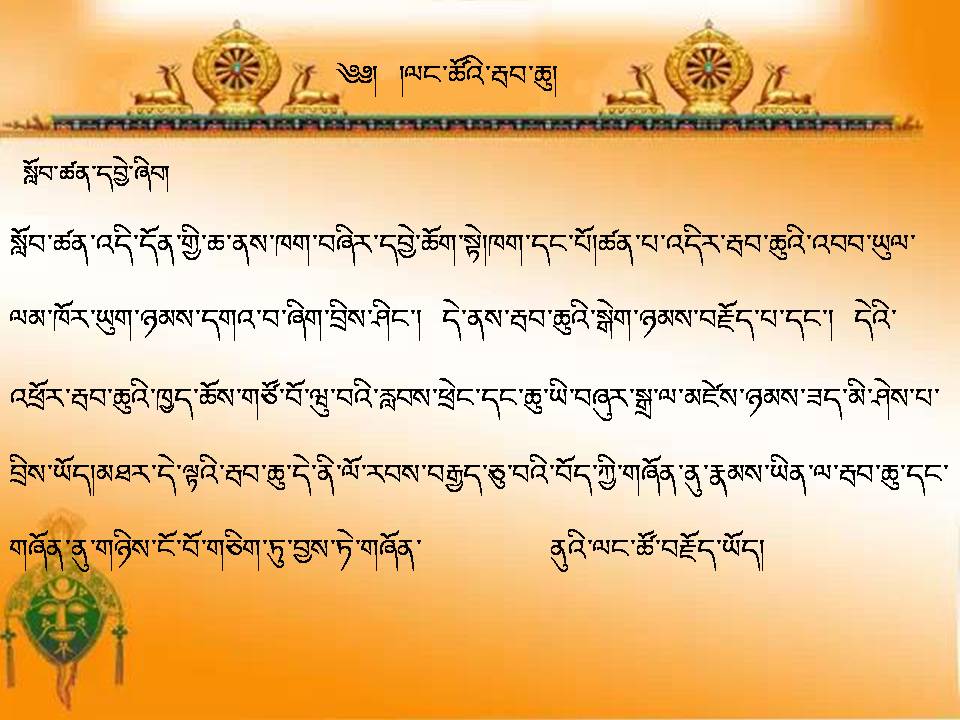 ༄༅། །ལང་ཚོའི་རྦབ་ཆུ།
སློབ་ཚན་དབྱེ་ཞིབ།
སློབ་ཚན་འདི་དོན་གྱི་ཆ་ནས་ཁག་བཞིར་དབྱེ་ཆོག་སྟེ།ཁག་དང་པོ།ཚན་པ་འདིར་རྦབ་ཆུའི་འབབ་ཡུལ་
ལམ་ཁོར་ཡུག་ཉམས་དགའ་བ་ཞིག་བྲིས་ཤིང་། དེ་ནས་རྦབ་ཆུའི་སྒེག་ཉམས་བརྗོད་པ་དང་། དེའི་
འཕྲོར་རྦབ་ཆུའི་ཁྱད་ཆོས་གཙོ་བོ་ཝུ་བའི་རླབས་ཕྲེང་དང་ཆུ་ཡི་བཞུར་སྒྲ་ལ་མཛེས་ཉམས་ཟད་མི་ཤེས་པ་
བྲིས་ཡོད།མཐར་དེ་ལྟའི་རྦབ་ཆུ་དེ་ནི་ལོ་རབས་བརྒྱད་ཅུ་བའི་བོད་ཀྱི་གཞོན་ནུ་རྣམས་ཡིན་ལ་རྦབ་ཆུ་དང་
གཞོན་ནུ་གཉིས་ངོ་བོ་གཅིག་ཏུ་བྱས་ཏེ་གཞོན་ ནུའི་ལང་ཚོ་བརྗོད་ཡོད།